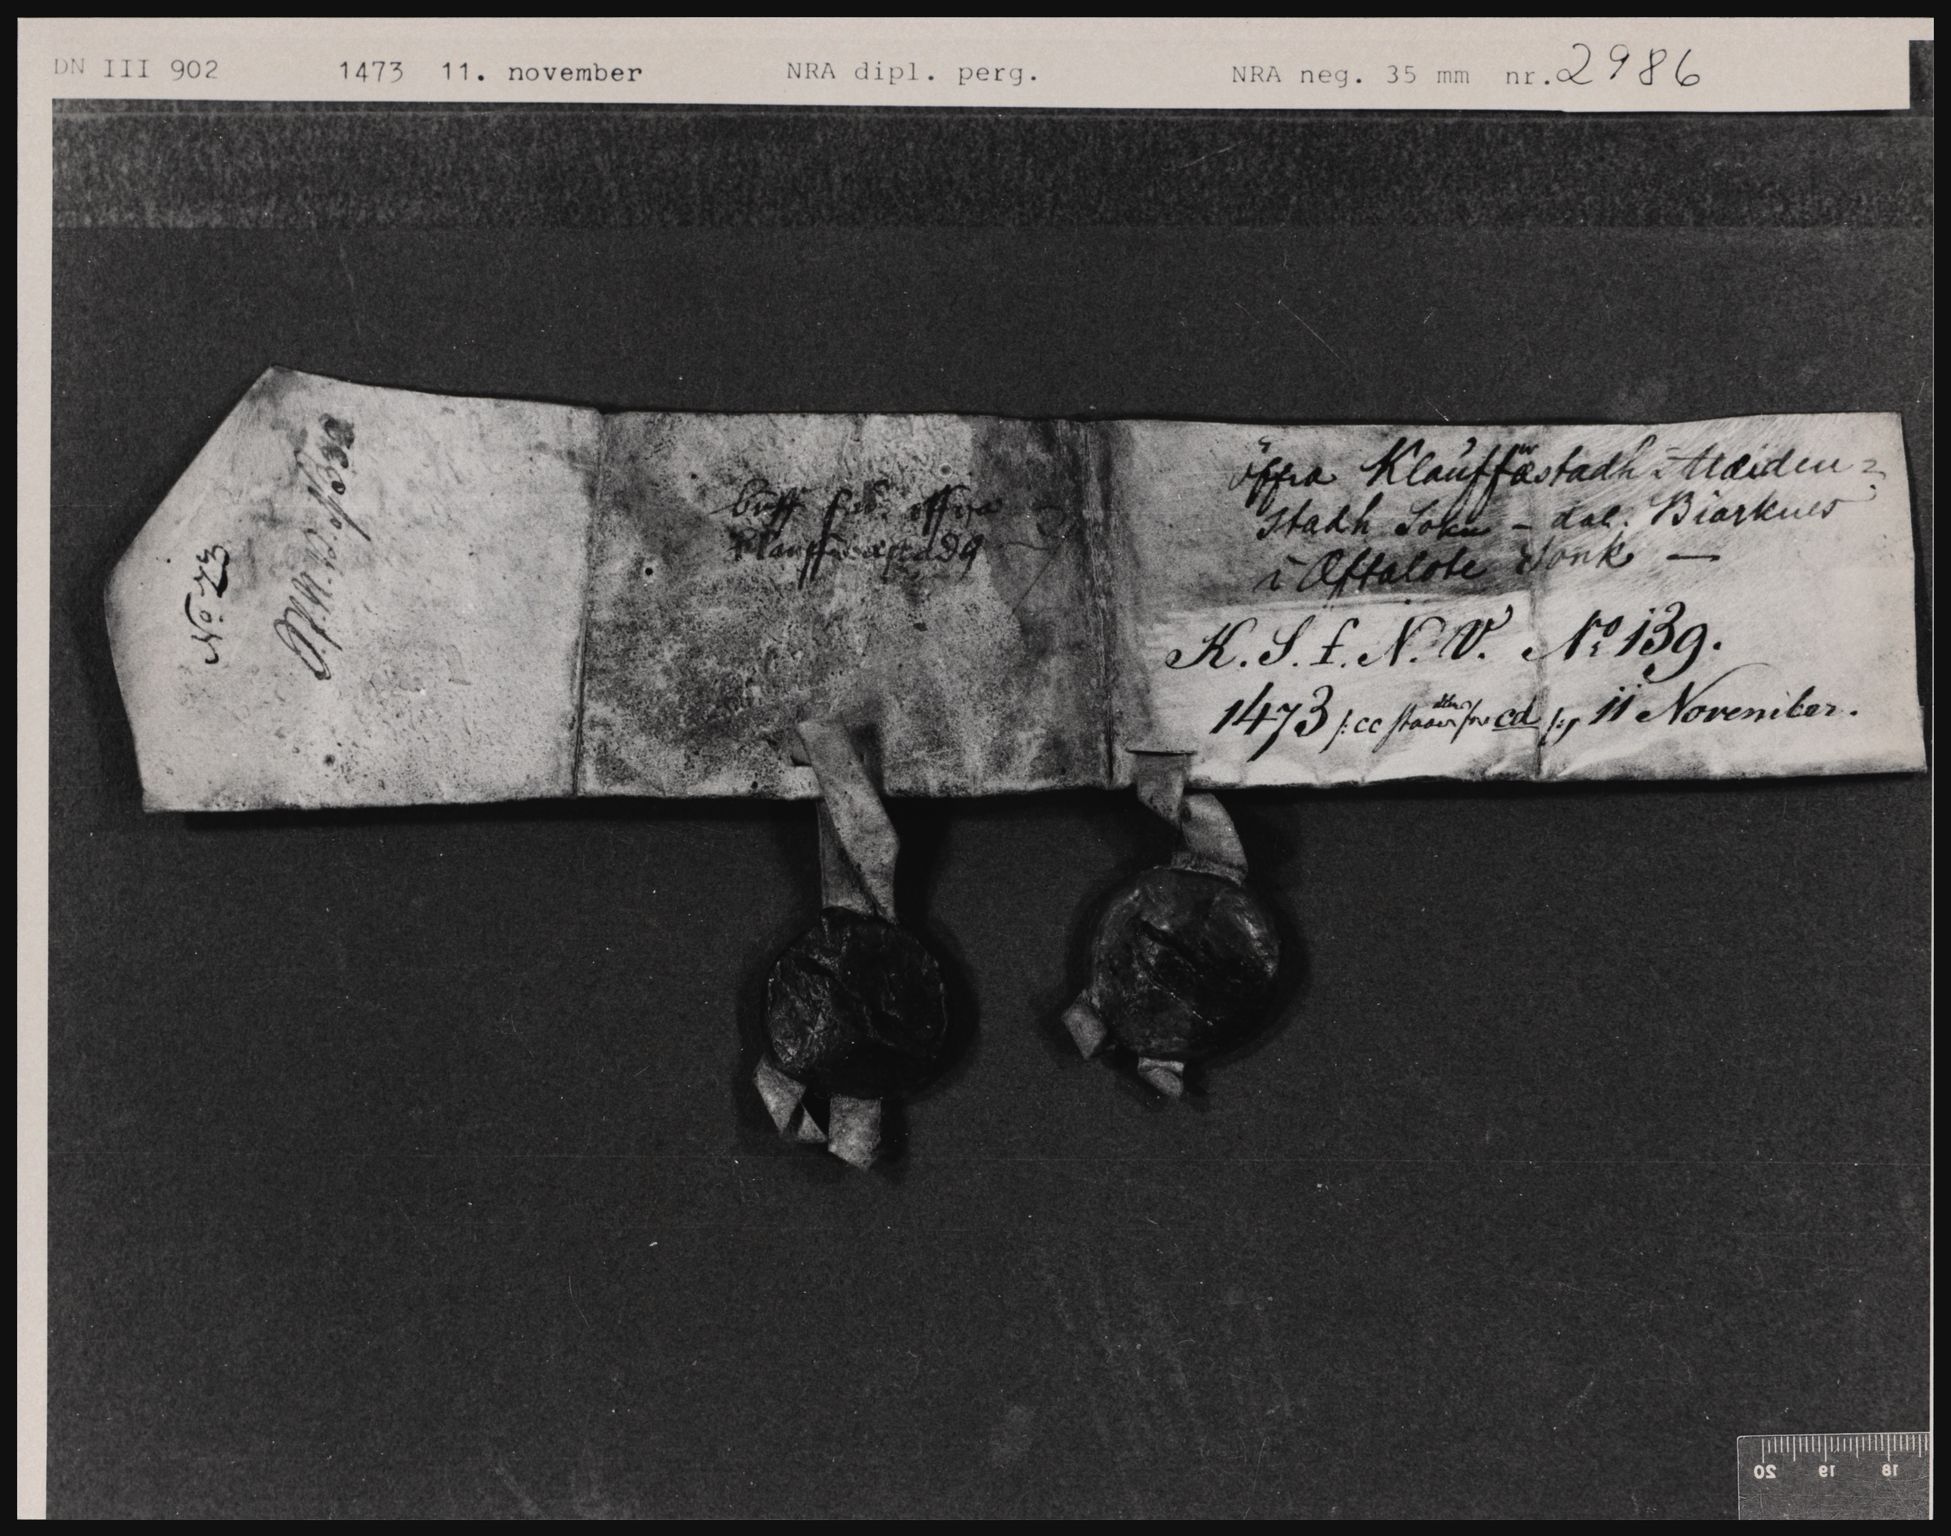 DN III 902 1473 11. november NRA dipl. perg. NRA neg. 35 mm nr. 2986
No 73
breff om øffra
klauffuastadh
öffra Klauffæstadh i Mæiden=
stadh Sokn - dal. Biarknes
i Œftalote Sonk —
K. S. f. N. V. No 139.
1473 /: cc staaer for cd /:, 11 November.
20 19 18